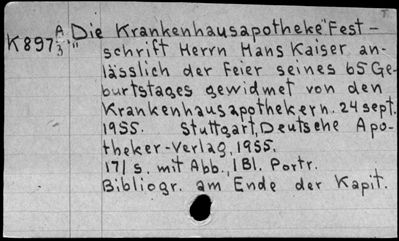 K897 A/3 "Die Krankenhausapotheke" Fest-
schrift Herrn Hans Kaiser an-
lässlich der Feier seines 65 Ge-
burtstages gewidmet von den
Krankenhausapothekern. 24 sept.
1955. Stuttgart, Deutsche Apo-
theker-Verlag, 1955.
171 s. mit Abb., 1 Bl. Portr.
Bibliogr. am Ende der Kapit.